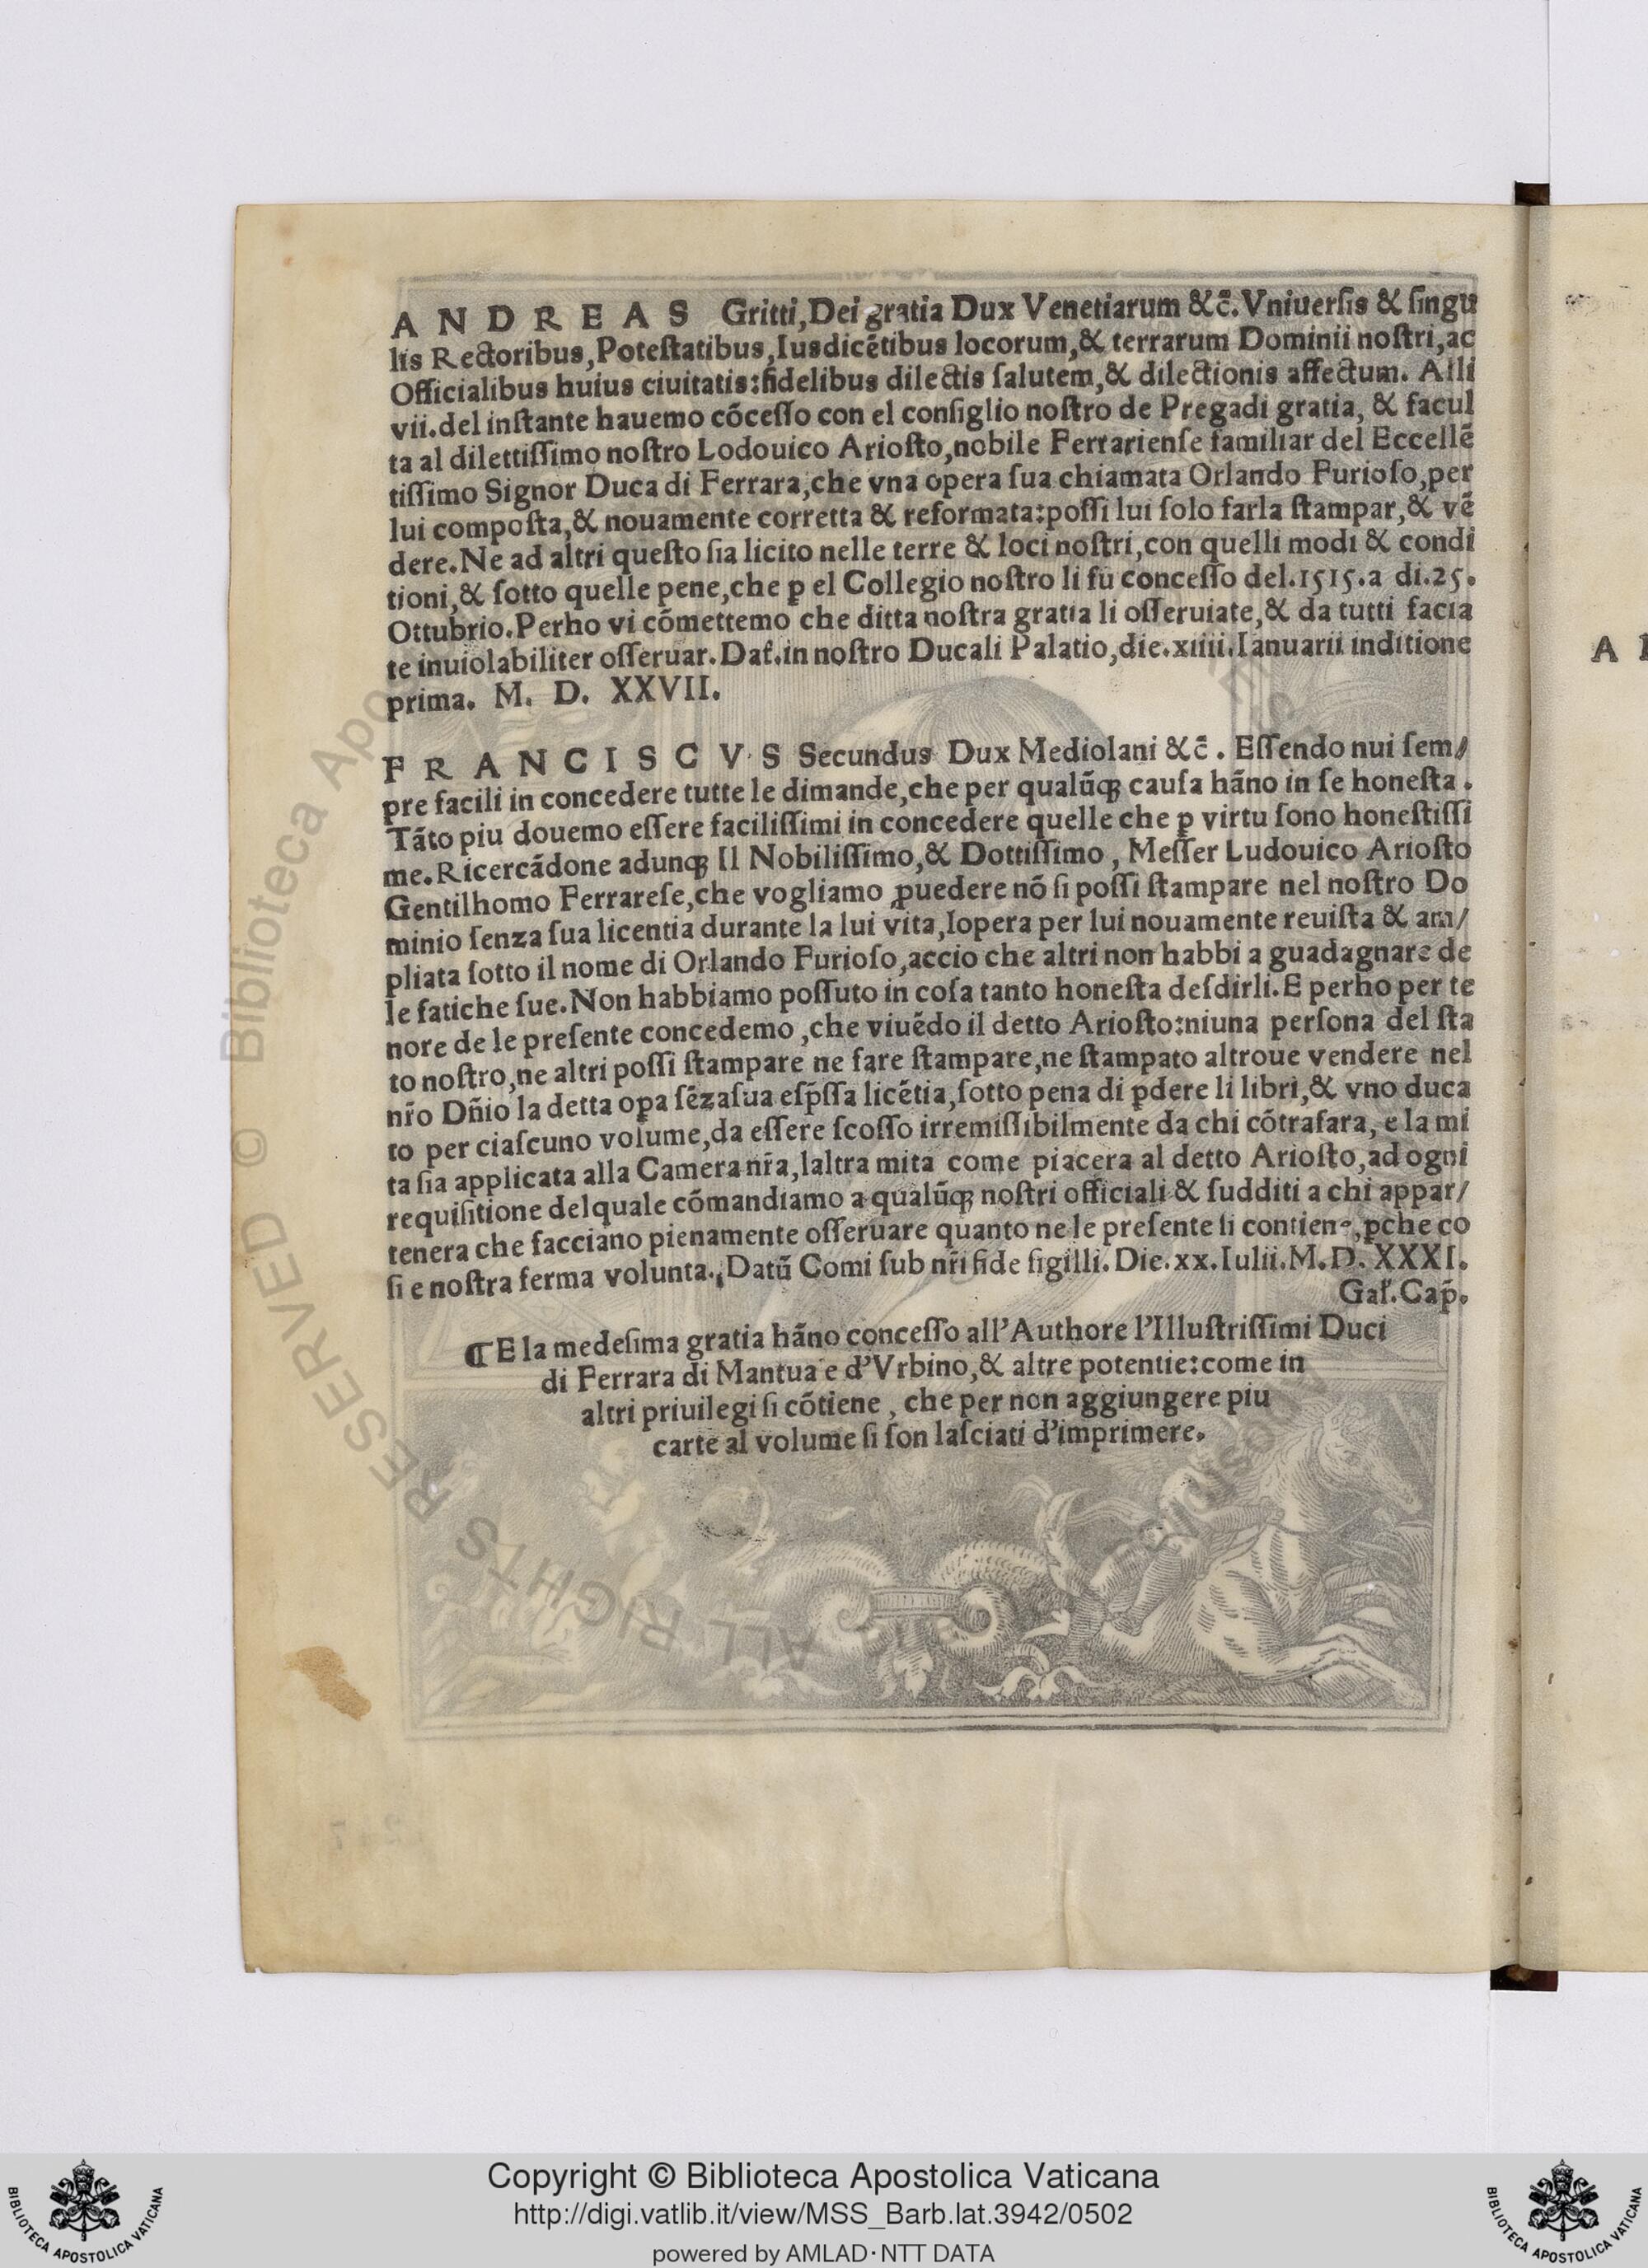 ANDREAS Gritti,Dei gratia Dux Venetiarum &c̃.Vniuerſis & ſingu
lis Rectoribus,Poteſtatibus,Iusdicẽtibus locorum,& terrarum Dominii noſtri,ac
Officialibus huius ciuitatis:fidelibus dilectis ſalutem,& dilectionis affectum. Alli
vii.del inſtante hauemo cõceſſo con el conſiglio noſtro de Pregadi gratia, & facul
ta al dilettiſſimo noſtro Lodouico Arioſto,nobile Ferrarienſe familiar del Eccellẽ
tiſſimo Signor Duca di Ferrara,che vna opera ſua chiamata Orlando Furioſo,per
lui compoſta,& nouamente corretta & reformata:poſſi lui ſolo farla ſtampar,& vẽ
dere.Ne ad altri queſto ſia licito nelle terre & loci noſtri,con quelli modi & condi
tioni,& ſotto quelle pene,che ꝑ el Collegio noſtro li fu conceſſo del.1515.a di.25.
Ottubrio.Perho vi cõmettemo che ditta noſtra gratia li oſſeruiate,& da tutti facia
te inuiolabiliter oſſeruar.Dat̃.in noſtro Ducali Palatio,die.xiiii.Ianuarii inditione
prima. M. D. XXVII.
FRANCISCVS Secundus Dux Mediolani &c̃. Eſſendo nui ſem/
pre facili in concedere tutte le dimande,che per qualũqꝫ cauſa hãno in ſe honeſta.
Tãto piu douemo eſſere faciliſſimi in concedere quelle che ꝑ virtu ſono honeſtiſſi
me.Ricercãdone adunqꝫ Il Nobiliſſimo,& Dottiſſimo, Meſſer Ludouico Arioſto
Gentilhomo Ferrareſe,che vogliamo ꝓuedere nõ ſi poſſi ſtampare nel noſtro Do
minio ſenza ſua licentia durante la lui vita,lopera per lui nouamente reuiſta & am/
pliata ſotto il nome di Orlando Furioſo,accio che altri non habbi a guadagnare de
le fatiche ſue.Non habbiamo poſſuto in coſa tanto honeſta deſdirli.E perho per te
nore de le preſente concedemo,che viuẽdo il detto Arioſto:niuna perſona del ſta
to noſtro,ne altri poſſi ſtampare ne fare ſtampare,ne ſtampato altroue vendere nel
nr̃o Dñio la detta oꝑa ſẽzaſua eſp̃ſſa licẽtia,ſotto pena di ꝑdere li libri,& vno duca
to per ciaſcuno volume,da eſſere ſcoſſo irremiſſibilmente da chi cõtrafara, e la mi
ta ſia applicata alla Camera nr̃a,laltra mita come piacera al detto Arioſto,ad ogni
requiſitione delquale cõmandiamo a qualũqꝫ noſtri officiali & ſudditi a chi appar/
tenera che facciano pienamente oſſeruare quanto ne le preſente ſi contiene,ꝑche co
ſi e noſtra ferma volunta. Datũ Comi ſub nr̃i fide ſigilli.Die.xx.Iulii.M.D.XXXI.
Gal̃.Cap̃.
¶E la medeſima gratia hãno conceſſo all'Authore l'Illuſtriſſimi Duci
di Ferrara di Mantua e d'Vrbino,& altre potentie:come in
altri priuilegi ſi cõtiene, che per non aggiungere piu
carte al volume ſi ſon laſciati d'imprimere.
Biblioteca Apostolica
ALL RIGHTS RESERVED ©
Copyright © Biblioteca Apostolica Vaticana
http://digi.vatlib.it/view/MSS_Barb.lat.3942/0502
powered by AMLAD·NTT DATA
BIBLIOTECA APOSTOLICA VATICANA
BIBLIOTECA APOSTOLICA VATICANA